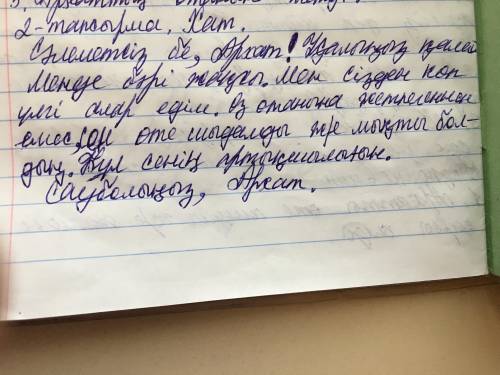 2-тапсырма, Хат.
Сәлеметсіз бе, Архат! Халыңыз қалай
Менде бәрі жақсы. Мен сізден көп
үлгі алар едім. Өз отаныңа
емес, сен өте шыдамды және мықты бол-
дың. Бұл сенің артықшылығың.
Сауболыңыз, Архат.